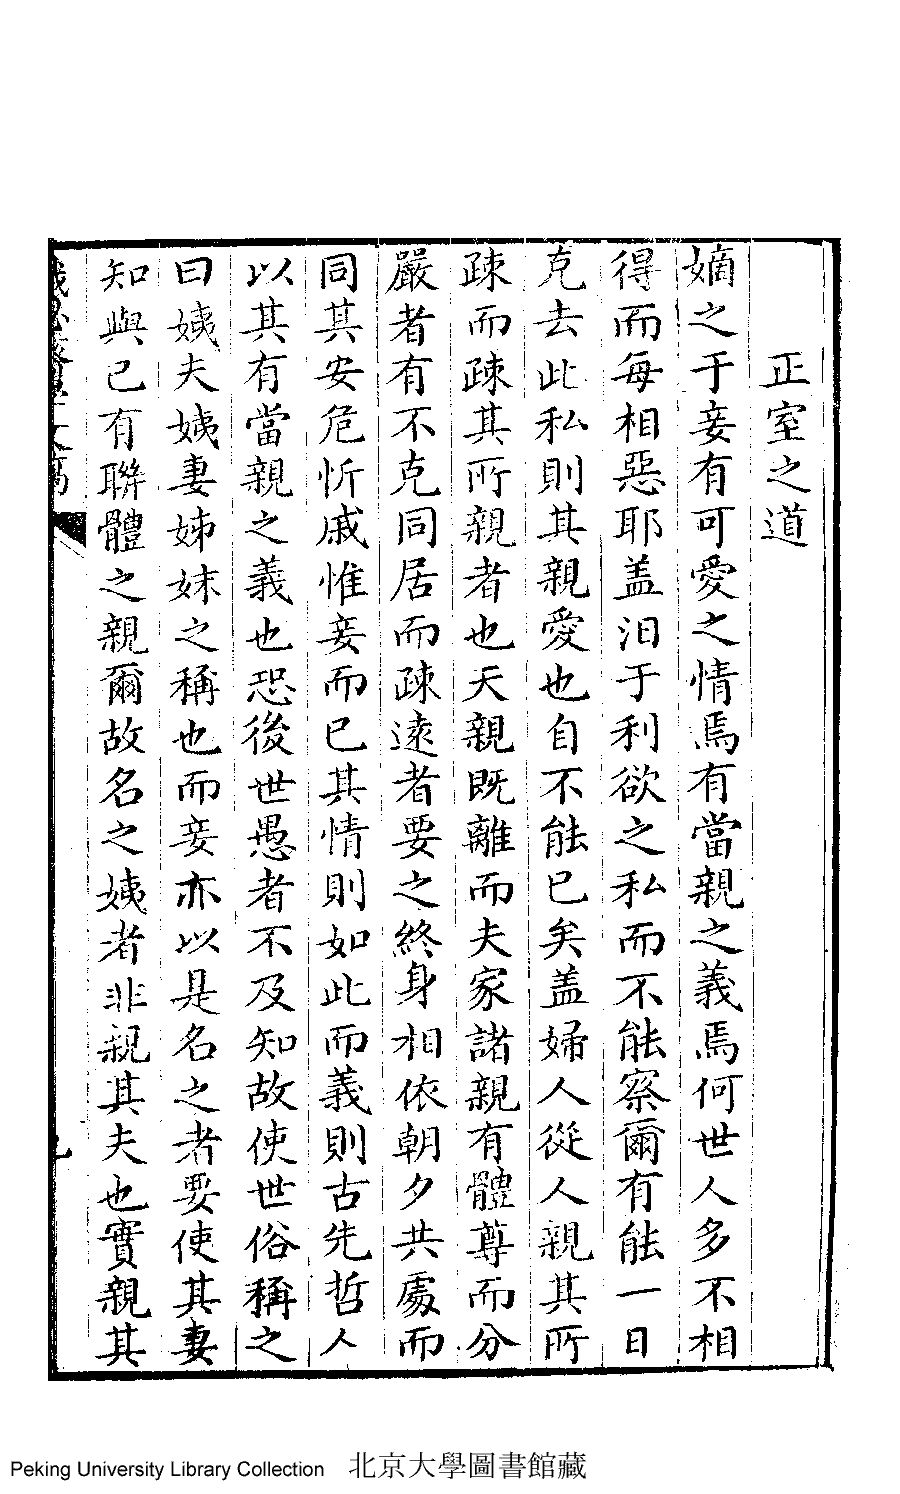 正室之道
嫡之于妾有可愛之情焉有當親之義焉何世人多不相
得而每相惡耶盖汨于利欲之私而不能察爾有能一日
克去此私則其親愛也自不能已矣盖婦人從人親其所
疎而疎其所親者也天親既離而夫家諸親有體尊而分
嚴者有不克同居而疎遠者要之終身相依朝夕共處而
同其安危忻戚惟妾而已其情則如此而義則古先哲人
以其有當親之義也恐後世愚者不及知故使世俗稱之
曰姨夫姨妻姊妹之稱也而妾亦以是名之者要使其妻
知與己有聯體之親爾故名之姨者非親其夫也實親其
Peking University Library Collection 北京大學圖書館藏